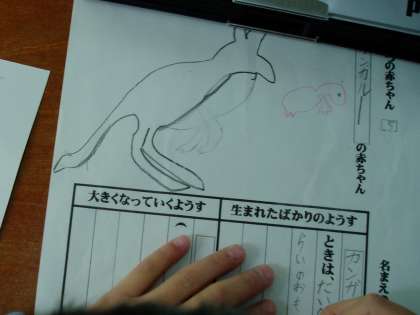 の赤ちゃん
カンガルー
の赤ちゃん
名まえ
生まれたばかりのようす
カンガ
ときは、だい
らいのおも
大きくなっていくようす